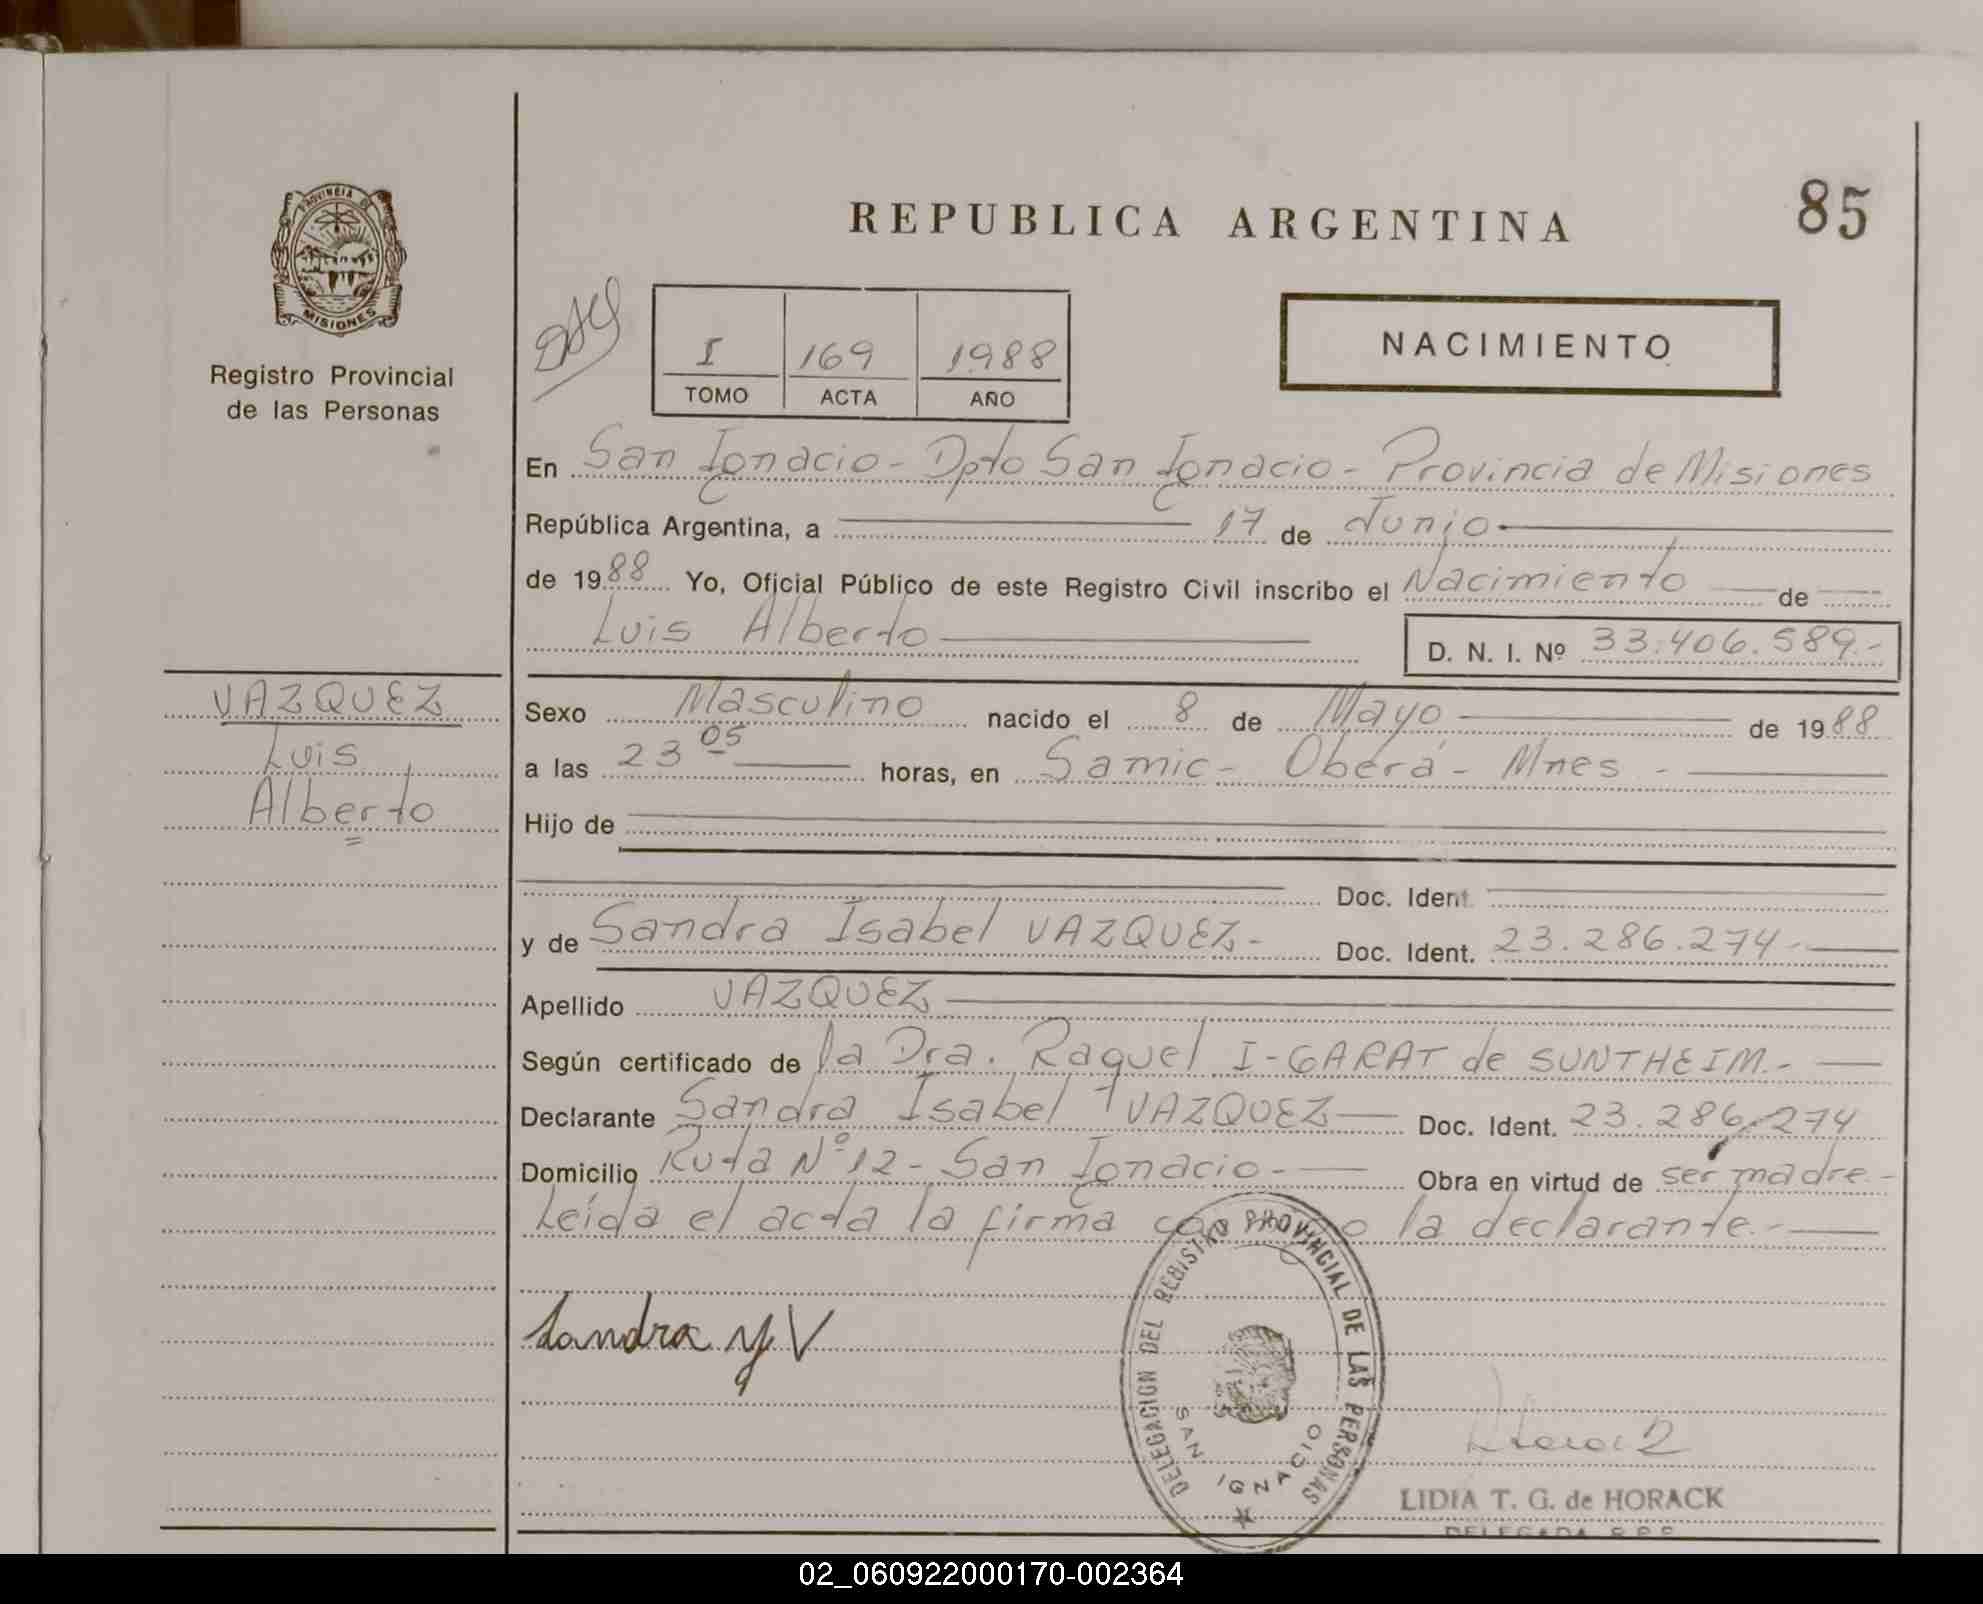 85
REPUBLICA ARGENTINA
PROVINCIA DE
MISIONES
Registro Provincial
de las Personas
I 169 1988
TOMO ACTA AÑO
NACIMIENTO
En San Ignacio - Dpto San Ignacio - Provincia de Misiones
República Argentina, a 17 de Junio
de 1988 Yo, Oficial Público de este Registro Civil inscribo el Nacimiento de
Luis Alberto D. N. I. Nº 33.406.589.-
VAZQUEZ
Luis
Alberto
Sexo Masculino nacido el 8 de Mayo de 1988
a las 23 05 horas, en Samic - Oberá - Mnes -
Hijo de
Doc. Ident.
y de Sandra Isabel VAZQUEZ - Doc. Ident. 23.286.274.-
Apellido VAZQUEZ
Según certificado de la Dra. Raquel I-GARAT de SUNTHEIM.-
Declarante Sandra Isabel VAZQUEZ Doc. Ident. 23.286.274
Domicilio Ruta Nº 12 - San Ignacio - Obra en virtud de ser madre.-
Leída el acta la firma conmigo la declarante.-
Sandra y V
DELEGACION DEL REGISTRO PROVINCIAL DE LAS PERSONAS
SAN IGNACIO
LIDIA T. G. de HORACK
DELEGADA R.P.P.
02_060922000170-002364